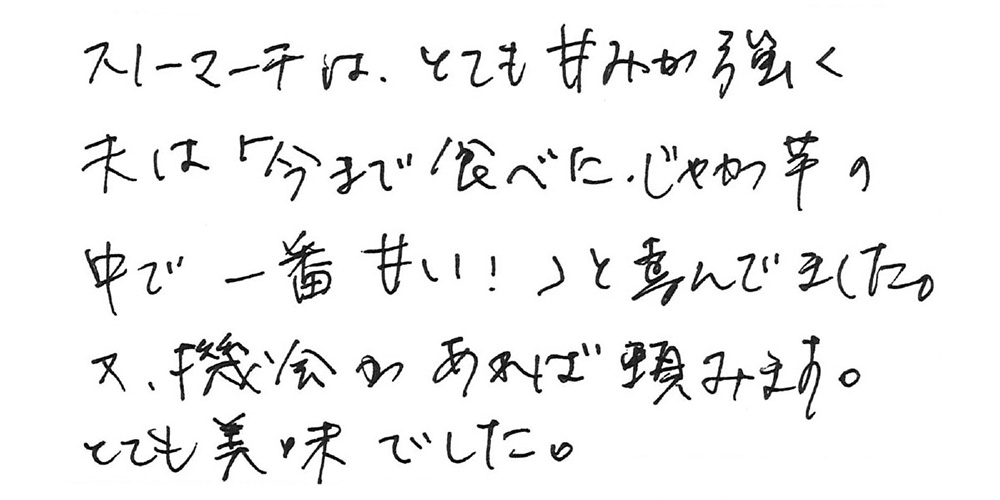 スリーマーチは、とても甘みが強く
夫は「今まで食べた、じゃが芋の
中で一番甘い!」と喜んでました。
又、機会があれば頼みます。
とても美味でした。